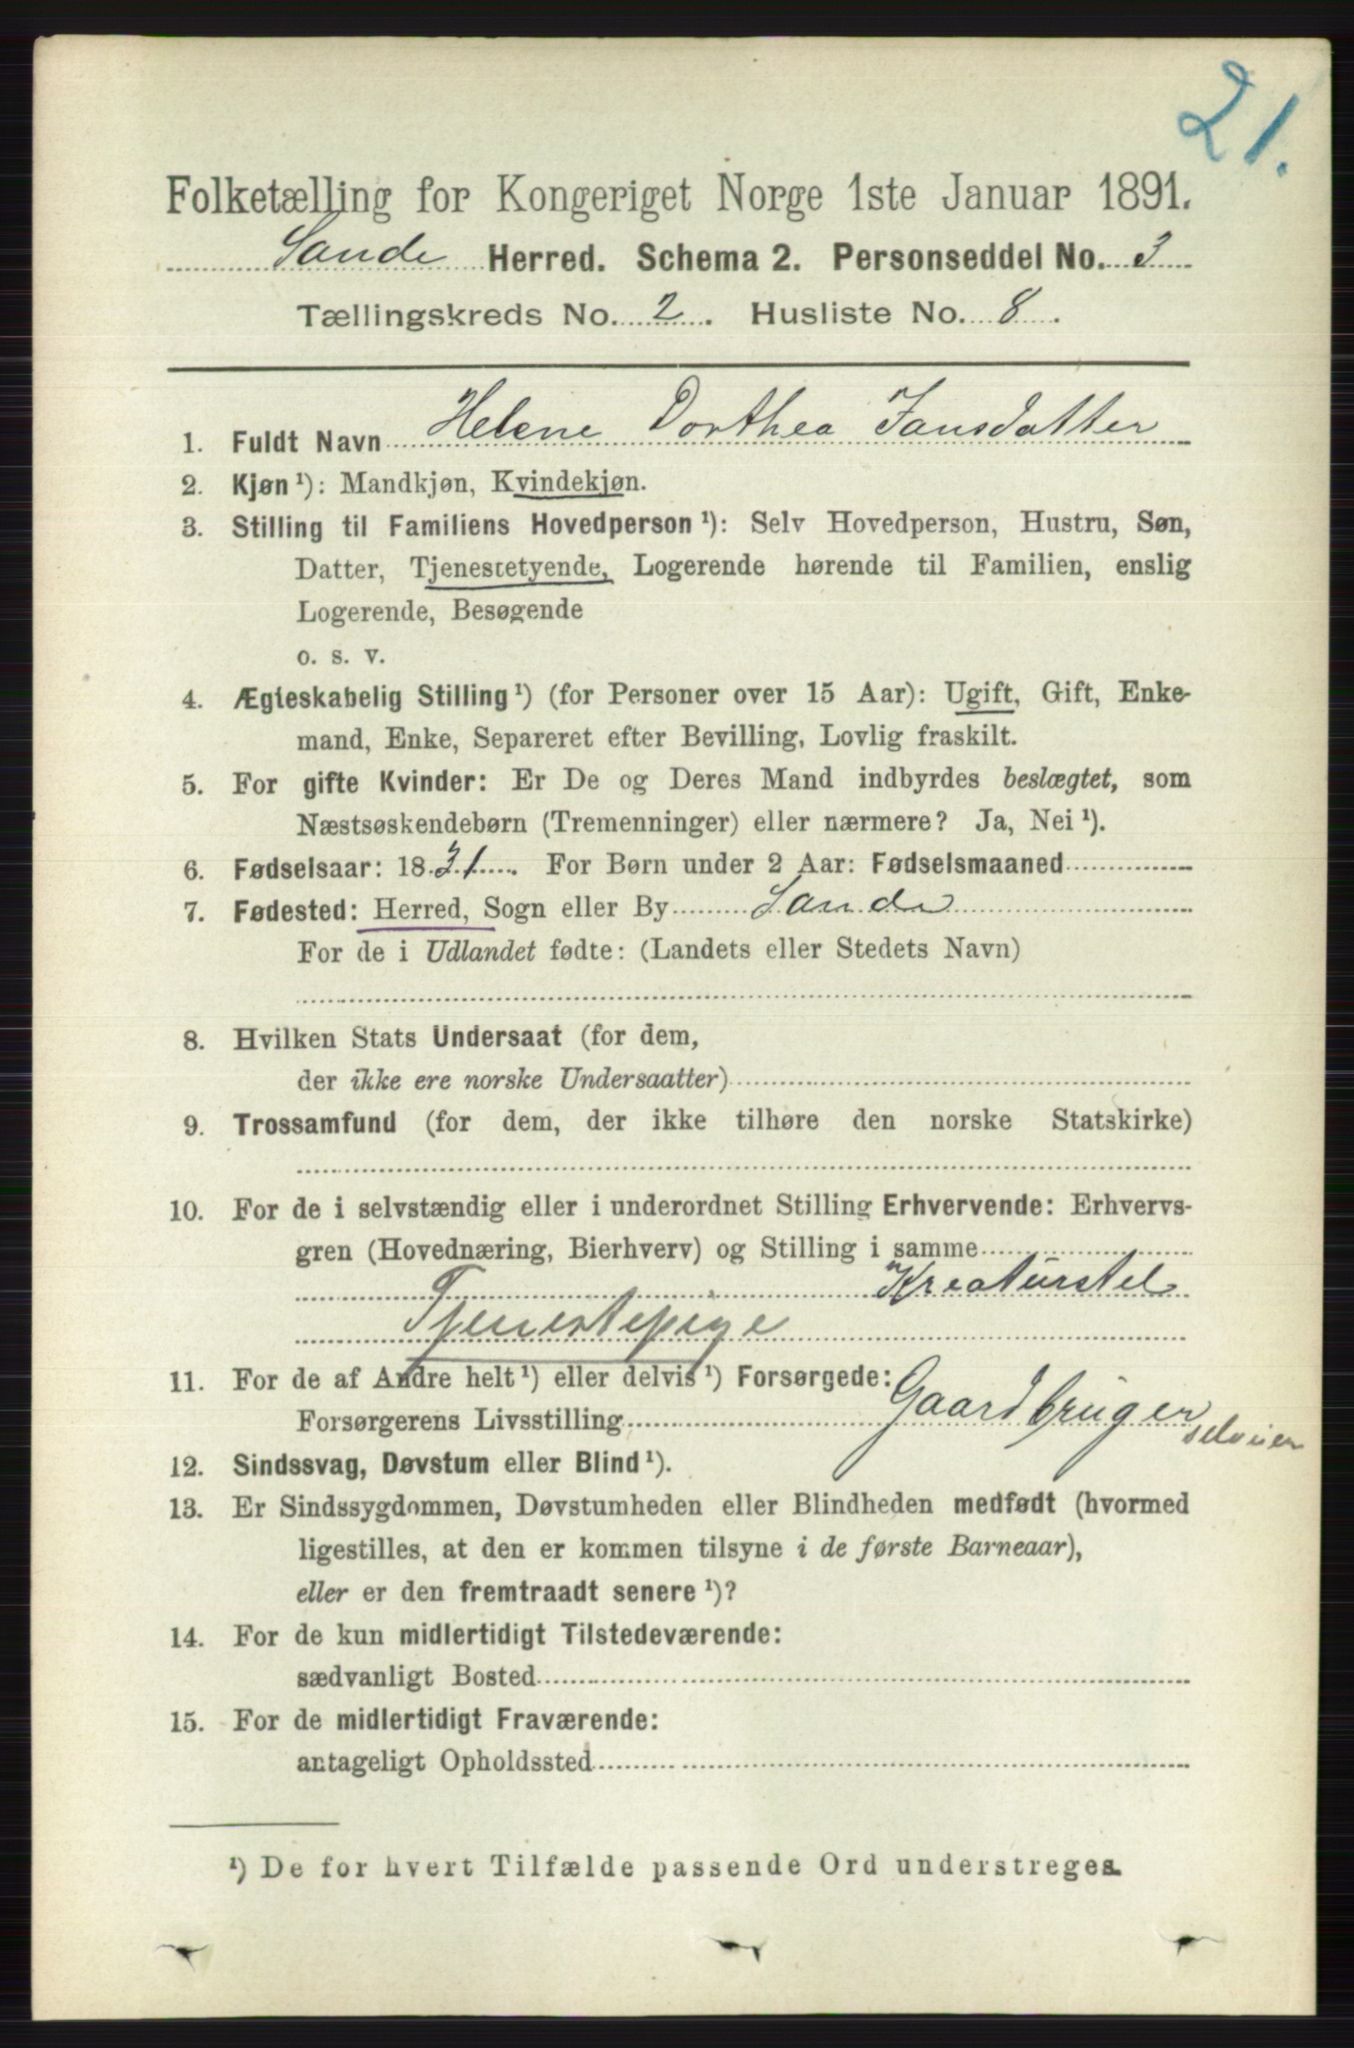 21.
Folketælling for Kongeriget Norge 1ste Januar 1891.
Sande Herred. Schema 2. Personseddel No. 3
Tællingskreds No. 2. Husliste No. 8.
1. Fuldt Navn Helene Dorthea Jansdatter
2. Kjøn ¹): Mandkjøn, Kvindekjøn.
3. Stilling til Familiens Hovedperson ¹): Selv Hovedperson, Hustru, Søn,
Datter, Tjenestetyende, Logerende hørende til Familien, enslig
Logerende, Besøgende
o. s. v.
4. Ægteskabelig Stilling ¹) (for Personer over 15 Aar): Ugift, Gift, Enke-
mand, Enke, Separeret efter Bevilling, Lovlig fraskilt.
5. For gifte Kvinder: Er De og Deres Mand indbyrdes beslægtet, som
Næstsøskendebørn (Tremenninger) eller nærmere? Ja, Nei ¹).
6. Fødselsaar: 1831. For Børn under 2 Aar: Fødselsmaaned
7. Fødested: Herred, Sogn eller By Sande
For de i Udlandet fødte: (Landets eller Stedets Navn)
8. Hvilken Stats Undersaat (for dem,
der ikke ere norske Undersaatter)
9. Trossamfund (for dem, der ikke tilhøre den norske Statskirke)
10. For de i selvstændig eller i underordnet Stilling Erhvervende: Erhvervs-
gren (Hovednæring, Bierhverv) og Stilling i samme
Kreaturstel
Tjenestepige
11. For de af Andre helt ¹) eller delvis ¹) Forsørgede:
Forsørgerens Livsstilling Gaardbruger
selveier
12. Sindssvag, Døvstum eller Blind ¹).
13. Er Sindssygdommen, Døvstumheden eller Blindheden medfødt (hvormed
ligestilles, at den er kommen tilsyne i de første Barneaar),
eller er den fremtraadt senere ¹)?
14. For de kun midlertidigt Tilstedeværende:
sædvanligt Bosted
15. For de midlertidigt Fraværende:
antageligt Opholdssted
¹) De for hvert Tilfælde passende Ord understreges.